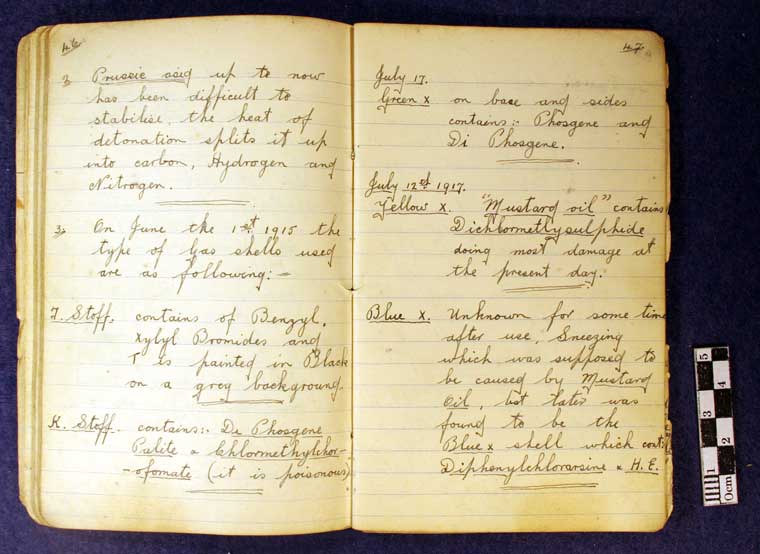 46
2 Prussic acid up to now
has been difficult to
stabilise, the heat of
detonation splits it up
into carbon, Hydrogen and
Nitrogen.
3. On June the 1st 1915 the
type of Gas shells used
are as following:-
T. Stoff. contains of Benzyl,
Xylyl Bromides and
T is painted in Black
on a grey background.
K. Stoff. contains:- Di Phosgene
Palite a Chlormethylchor-
-ofomate (it is poisonous)
47
July 17.
Green X on base and sides
contains:- Phosgene and
Di Phosgene.
July 12th 1917.
Yellow X. "Mustard oil" contains
Dichlormetlysulphide
doing most damage at
the present day.
Blue X. Unknown for some time
after use, Sneezing
which was supposed to
be caused by Mustard
Oil, but later was
found to be the
Blue X shell which cont:
Diphenylchlorarsine & H.E.
0cm 1 2 3 4 5